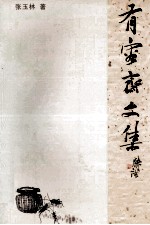 张玉林 著
有容斋文集